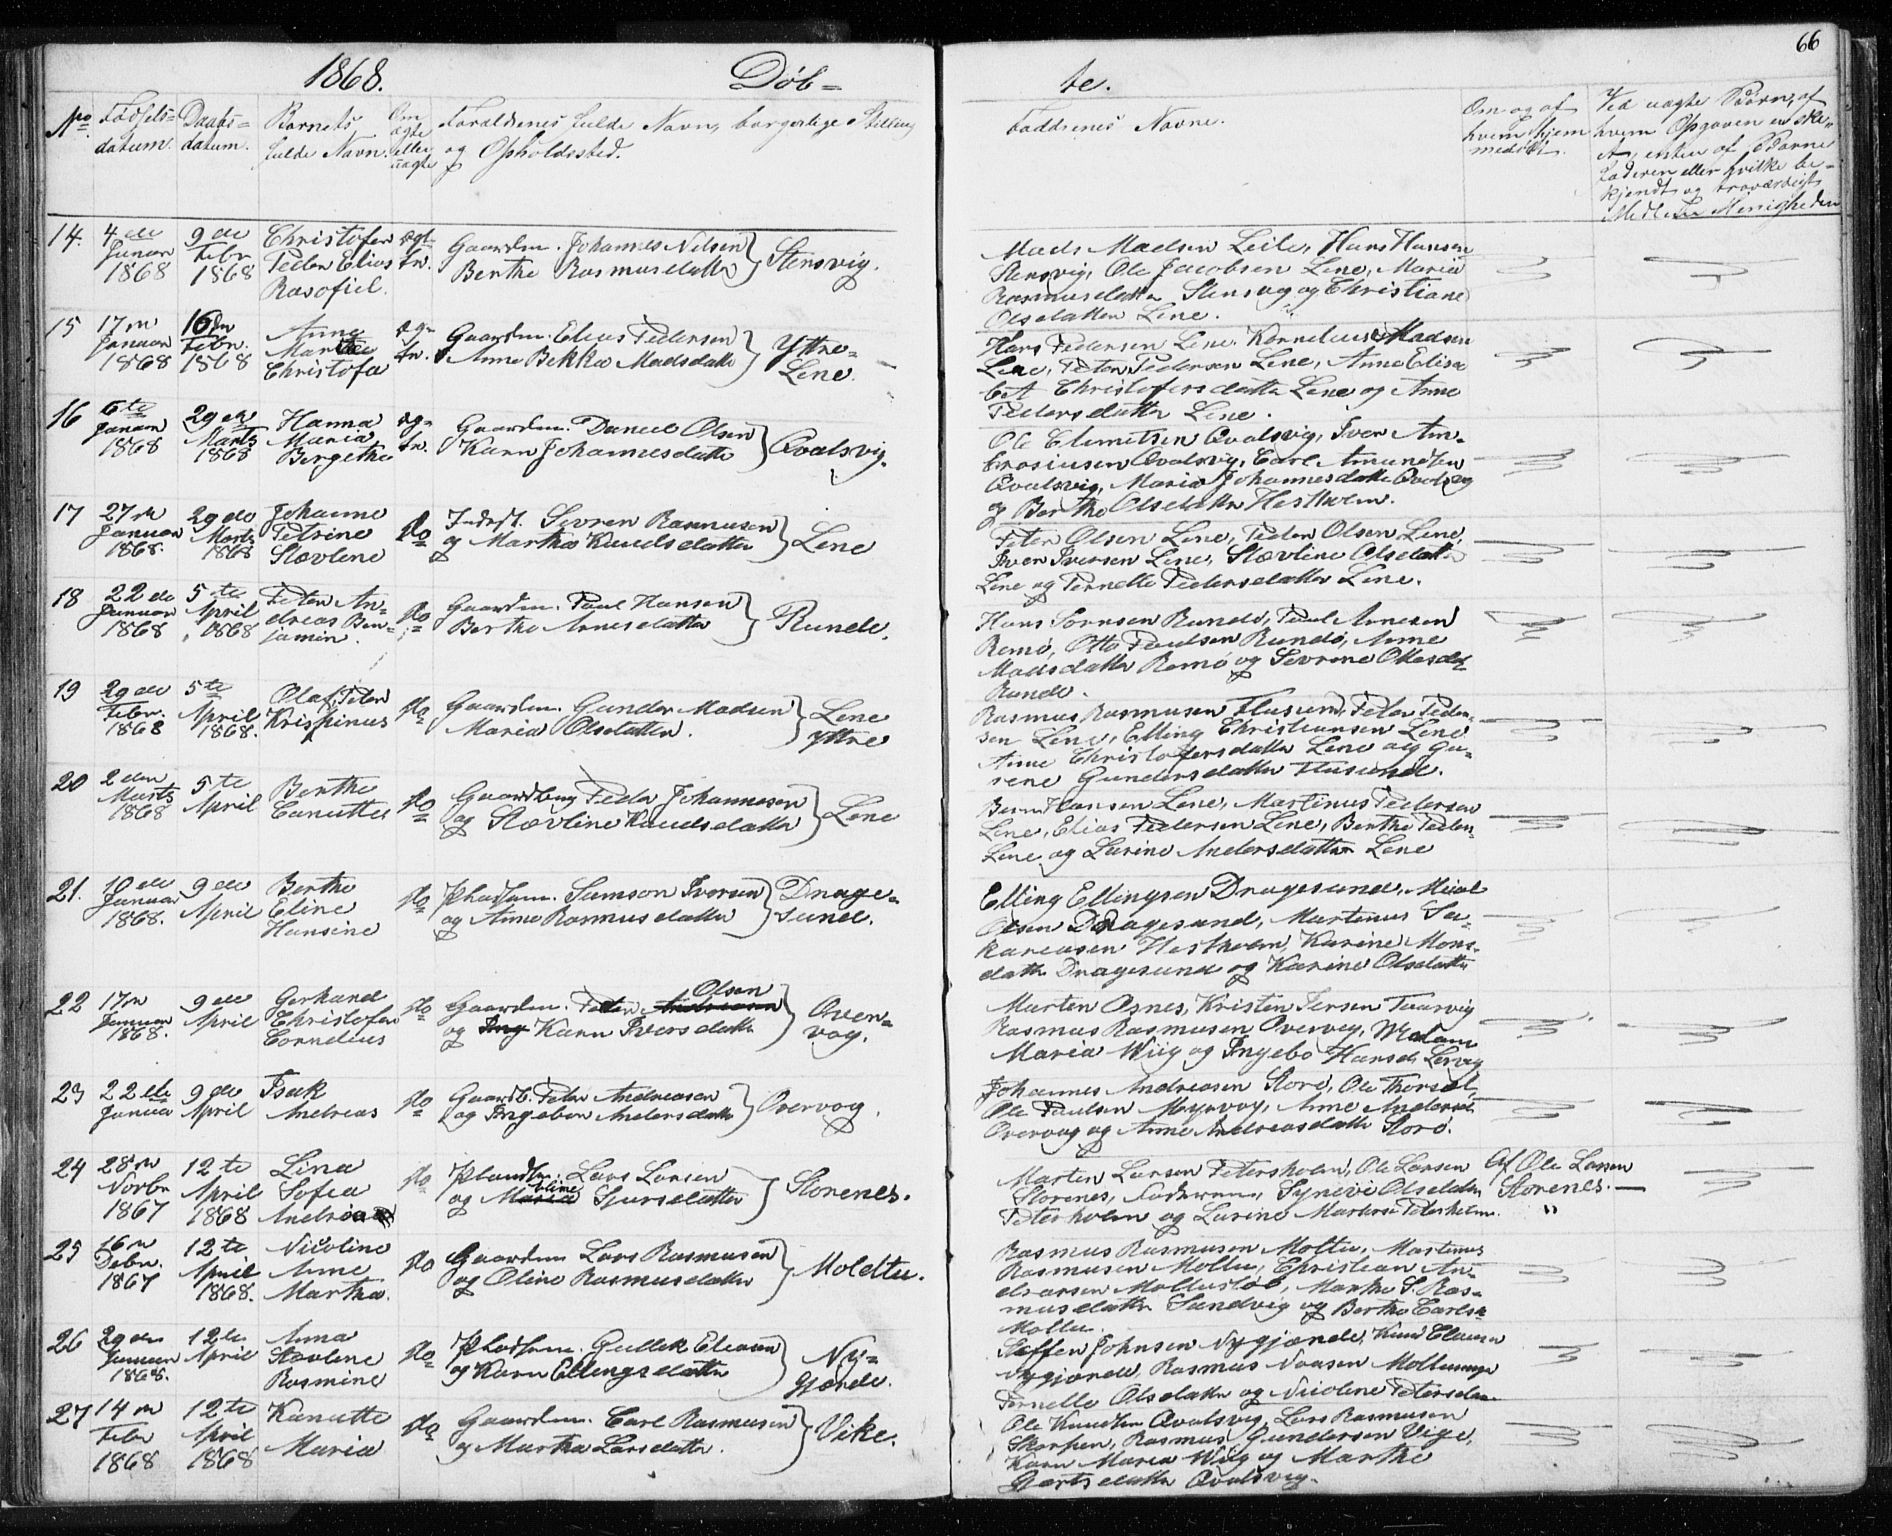 66
1868. Døb= te.
No. Fødsels= datum. Daabs= datum. Barnets fulde Navn. Om ægte eller uægte Forældrenes fulde Navn, borgerlige Stilling og Opholdssted.
Faddrenes Navne. Om og af hvem hjem medøbt. Ved uægte Børn, af hvem Opgaven er ske= t, enten af Barne faderen eller hvilke be= kjendt og troværdigt Medl. Menigheden
14. 4 de Januar 1868 9 de Febr 1868 Christofer Peder Elias Rasofiel. ægt= fn. Gaardm. Johannes Nilsen Berthe Rasmusdatter } Stensvig.
Mads Madsen Leite, Hans Hansen
Stensvig, Ole Jacobsen Lene, Maria
Rasmusdatter Stensvig og Christiane
Olsdatter Lene.
15 17 n Januar 1868 16 n Febr. 1868 Anne Martha Christofa æg= fn. Gaardm. Elias Pedersen Anne Bekka Madsdatte } Yttre= Lene.
Hans Pedersen Lene Kornelius Madsen
Lene, Peter Pedersen Lene, Anne Elisa
bet Christofersdatter Lene og Anne
Pedersdatter Lene.
16 6 te Januar 1868 29 de Marts 1868 Hanna Maria Bergethe æg= fn. Gaardm. Daniel Olsen Karn Johannesdatte } Qvalsvig.
Ole Clemetsen Qvalsvig, Iver Am=
brosiusen Qvalsvig, Carl Amundsen
Qvalsvig, Maria Johannesdatte Qvalsvig
og Berthe Olsdatter Hestholm.
17 27 n Januar 1868. 29 de Marts 1868 Johanne Petrine Stovline do Inderst. Sevren Rasmusen og Martha Knudsdatter } Lene
Peter Olsen Lene, Peder Olsen Lene,
Iver Iversen Lene, Stovline Olsdatte
Lene og Pernelle Pedersdatter Lene.
18 22 de Januar 1868 5 te April 1868 Peter An= dreas Ben= jamin. do Gaardm. Paul Hansen Berthe Arnesdatter } Runde.
Hans Sørnsen Rundø, Paul Arnesen
Remø, Otto Paulsen Rundø, Anne
Madsdatter Remø og Sevrine Ottesdt
Runde.
19 29 de Febr. 1868 5 te April 1868. Olaf Peter Krispinus do Gaardm. Gunder Madsen Maria Olsdatter. } Lene yttre
Rasmus Rasmusen Flusund, Peter Peder=
sen Lene, Elling Christiansen Lene
Anne Christofersdatter Lene og Gu=
rene Gundersdatter Flusund.
20 2 den Marts 1868 5 te April Berthe Canutte do Gaardbrug Peder Johannesen og Stovline Knudsdatter } Lene
Bernt Hansen Lene, Martinus Pedersen
Lene, Elias Pedersen Lene, Berthe Peder=
Lene og Lurine Andersdatter Lene
21. 10 de Januar 1868. 9 de April Berthe Eline Hansine do Pladsm. Samson Iversen og Anne Rasmusdatter } Drage= sund.
Elling Ellingsen Dragesund, Mikal
Olsen Dragesund, Martinus Sa=
kareasen Hestholm, Karine Mons=
datte Dragesund og Karine Olsdatte
22 17 n Januar 1868. 9 de April Gerhard Christofer Cornelius do Gaardm. Peter Olsen og Karn Iversdatte } Over= vog.
Marten Osnes, Kristen Jersen Tuarvig
Rasmus Rasmusen Overvog, Madam
Maria Wiig og Ingebo Hansd. Lervig
23 22 de Janua 9 de April Isak Andreas do Gaardb. Peter Andreasen og Ingebor Andersdatte } Overvog.
Johannes Andreasen Storø, Ole Thorsel,
Ole Paulsen Myrvog, Anne Andersd
Overvog og Anne Andreasdatte Storø.
24 28 n Novbr 1867 12 te April 1868 Lina Sofia Andrea do Pladsm. Lars Larsen og Oline Sjursdatter } Storenes.
Marten Larsen Petersholm, Ole Larsen Af Ole Larsen
Storenes, Synevi Olsdatter Storenes. —
Petersholm og Lurine Martens Petersholm. "
25 16 n Debr. 1867 12 te April 1868. Nicoline Anne Martha. do Gaardm Lars Rasmusen og Oline Rasmusdatter } Moldtu.
Rasmus Rasmusen Moltu, Martinus
Rasmusen Moltu, Christian An=
drearsen Moltustøl, Marthe S. Ras=
musdatter Sandvig og Berthe Carlsd
Moltu.
26 29 de Januar 1868. 12 te April Anna Stovline Rasmine do Pladsm. Gullek Eliasen og Karn Ellingsdatter } Ny= gjærde.
Steffen Johnsen Nygjærde, Knud Clausen
Nygjærde, Rasmus Moltu
Pernelle Olsdatter og Nicoline Petersdatter
27 14 n Febr 1868 12 te April 1868 Kanutte Maria do Gaardm. Carl Rasmusen og Martha Larsdatter. } Vike.
Ole Knudsen Qvalsvig, Lars Rasmusen
Skorpen, Rasmus Gundersen Vige,
Karn Maria Wiig og Marthe
Gjertsdatter Qvalsvig.